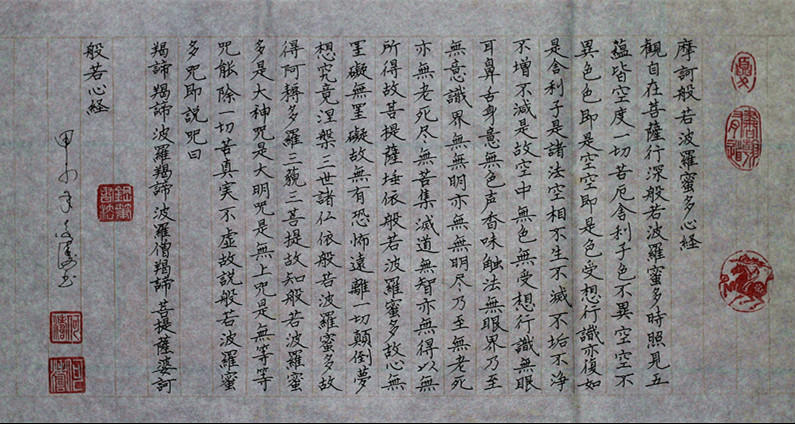 摩訶般若波羅蜜多心経
観自在菩薩行深般若波羅蜜多時照見五
蘊皆空度一切苦厄舎利子色不異空空不
異色色即是空空即是色受想行識亦復如
是舎利子是諸法空相不生不滅不垢不浄
不增不減是故空中無色無受想行識無眼
耳鼻舌身意無色声香味触法無眼界乃至
無意識界無無明亦無無明尽乃至無老死
亦無老死尽無苦集滅道無智亦無得以無
所得故菩提薩埵依般若波羅蜜多故心無
罣礙無罣礙故無有恐怖遠離一切顛倒夢
想究竟涅槃三世諸仏依般若波羅蜜多故
得阿耨多羅三藐三菩提故知般若波羅蜜
多是大神咒是大明咒是無上咒是無等等
咒能除一切苦真実不虚故説般若波羅蜜
多咒即説咒曰
羯諦羯諦波羅羯諦波羅僧羯諦菩提薩婆訶
般若心経